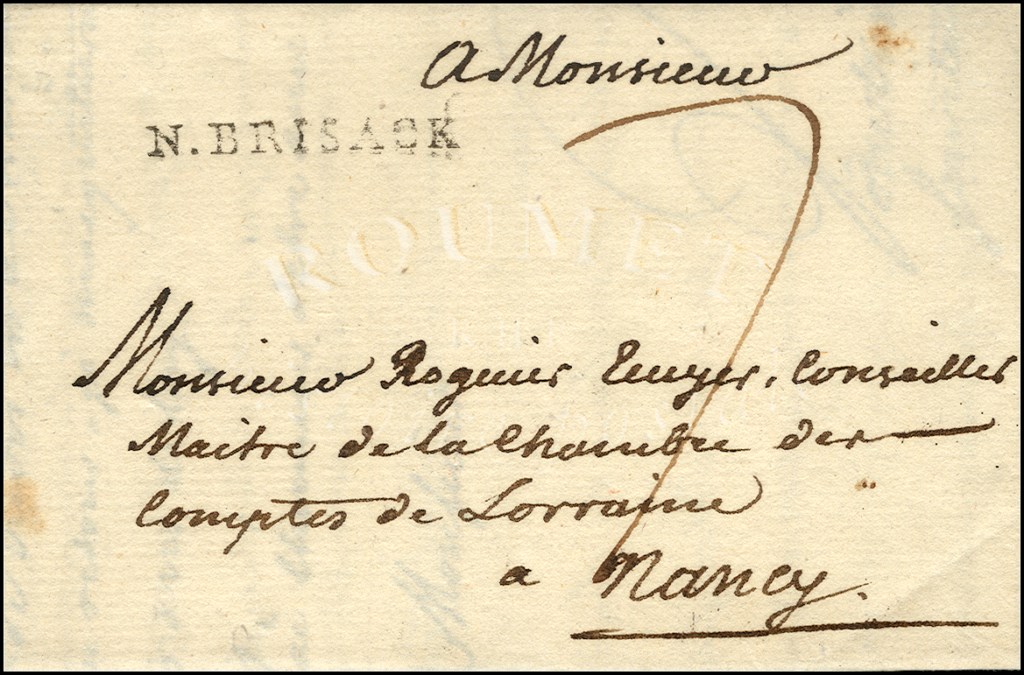 A Monsieur
N.BRISACK
7
ROUMET
Monsieur Roguier Ecuyer, Conseiller
Maitre de la Chambre des
Comptes de Lorraine
a Nancy.